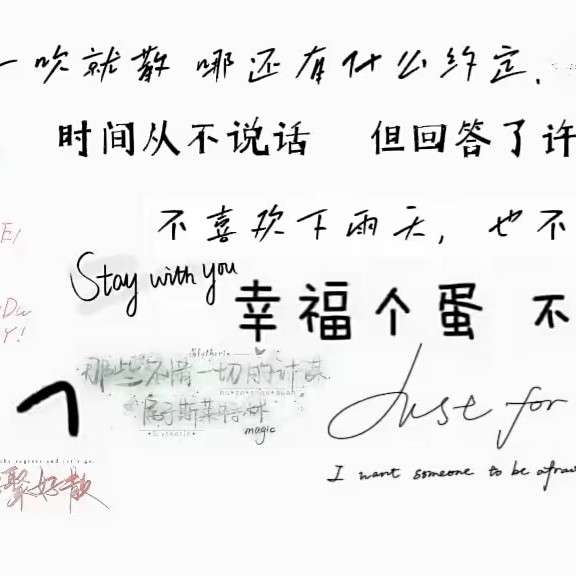 一吹就散 哪还有什么约定.
时间从不说话 但回答了许
不喜欢下雨天，也不
Stay with you
幸福个蛋 不
Y!
Slytherin
那些不惜一切的计谋
属于斯莱特林
magic
Just for
I want someone to be afraid
聚好散